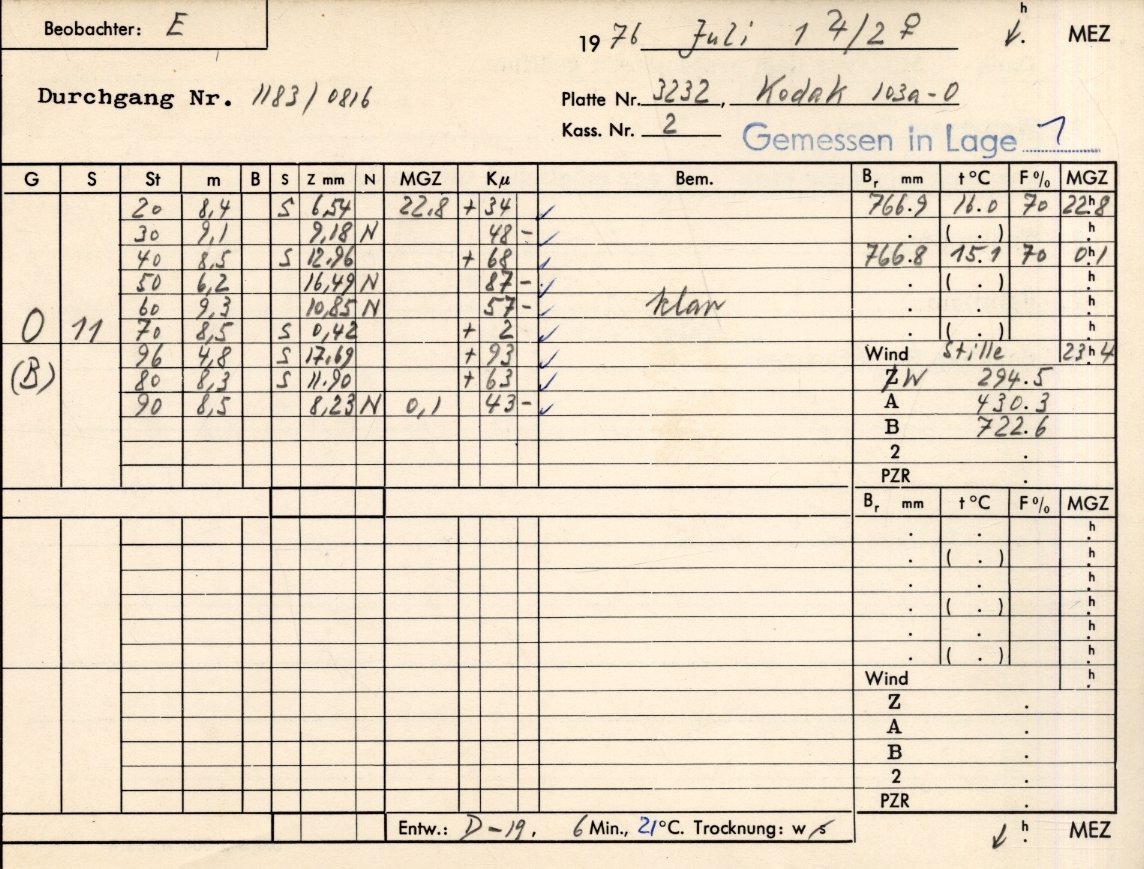 Beobachter: E
19 76 Juli 1 4/2 ♀ h MEZ
Durchgang Nr. 1183/0816
Platte Nr. 3232, Kodak 103a-O
Kass. Nr. 2 Gemessen in Lage 1
G S St m B S Z mm N MGZ Kμ Bem. Br mm t °C F % MGZ
20 8,4 S 6,54 22,8 + 34 766.9 16.0 70 22h8
30 9,1 9,18 N 48 - ( . ) h
40 8,5 S 12,96 + 68 766.8 15.1 70 0h1
50 6,2 16,49 N 87 - ( . ) h
60 9,3 10,85 N 57 - klar h
O 11 70 8,5 S 0,42 + 2 ( . ) h
96 4,8 S 17,69 + 93 Wind Stille 23h4
(B) 80 8,3 S 11.90 + 63 Z W 294.5
90 8,5 8,23 N 0,1 43 - A 430.3
B 722.6
2 .
PZR .
Br mm t °C F % MGZ
. . h
. ( . ) h
. . h
. ( . ) h
. . h
. ( . ) h
Wind h
Z .
A .
B .
2 .
PZR .
Entw.: D-19. 6 Min., 21 °C. Trocknung: w/s
h MEZ